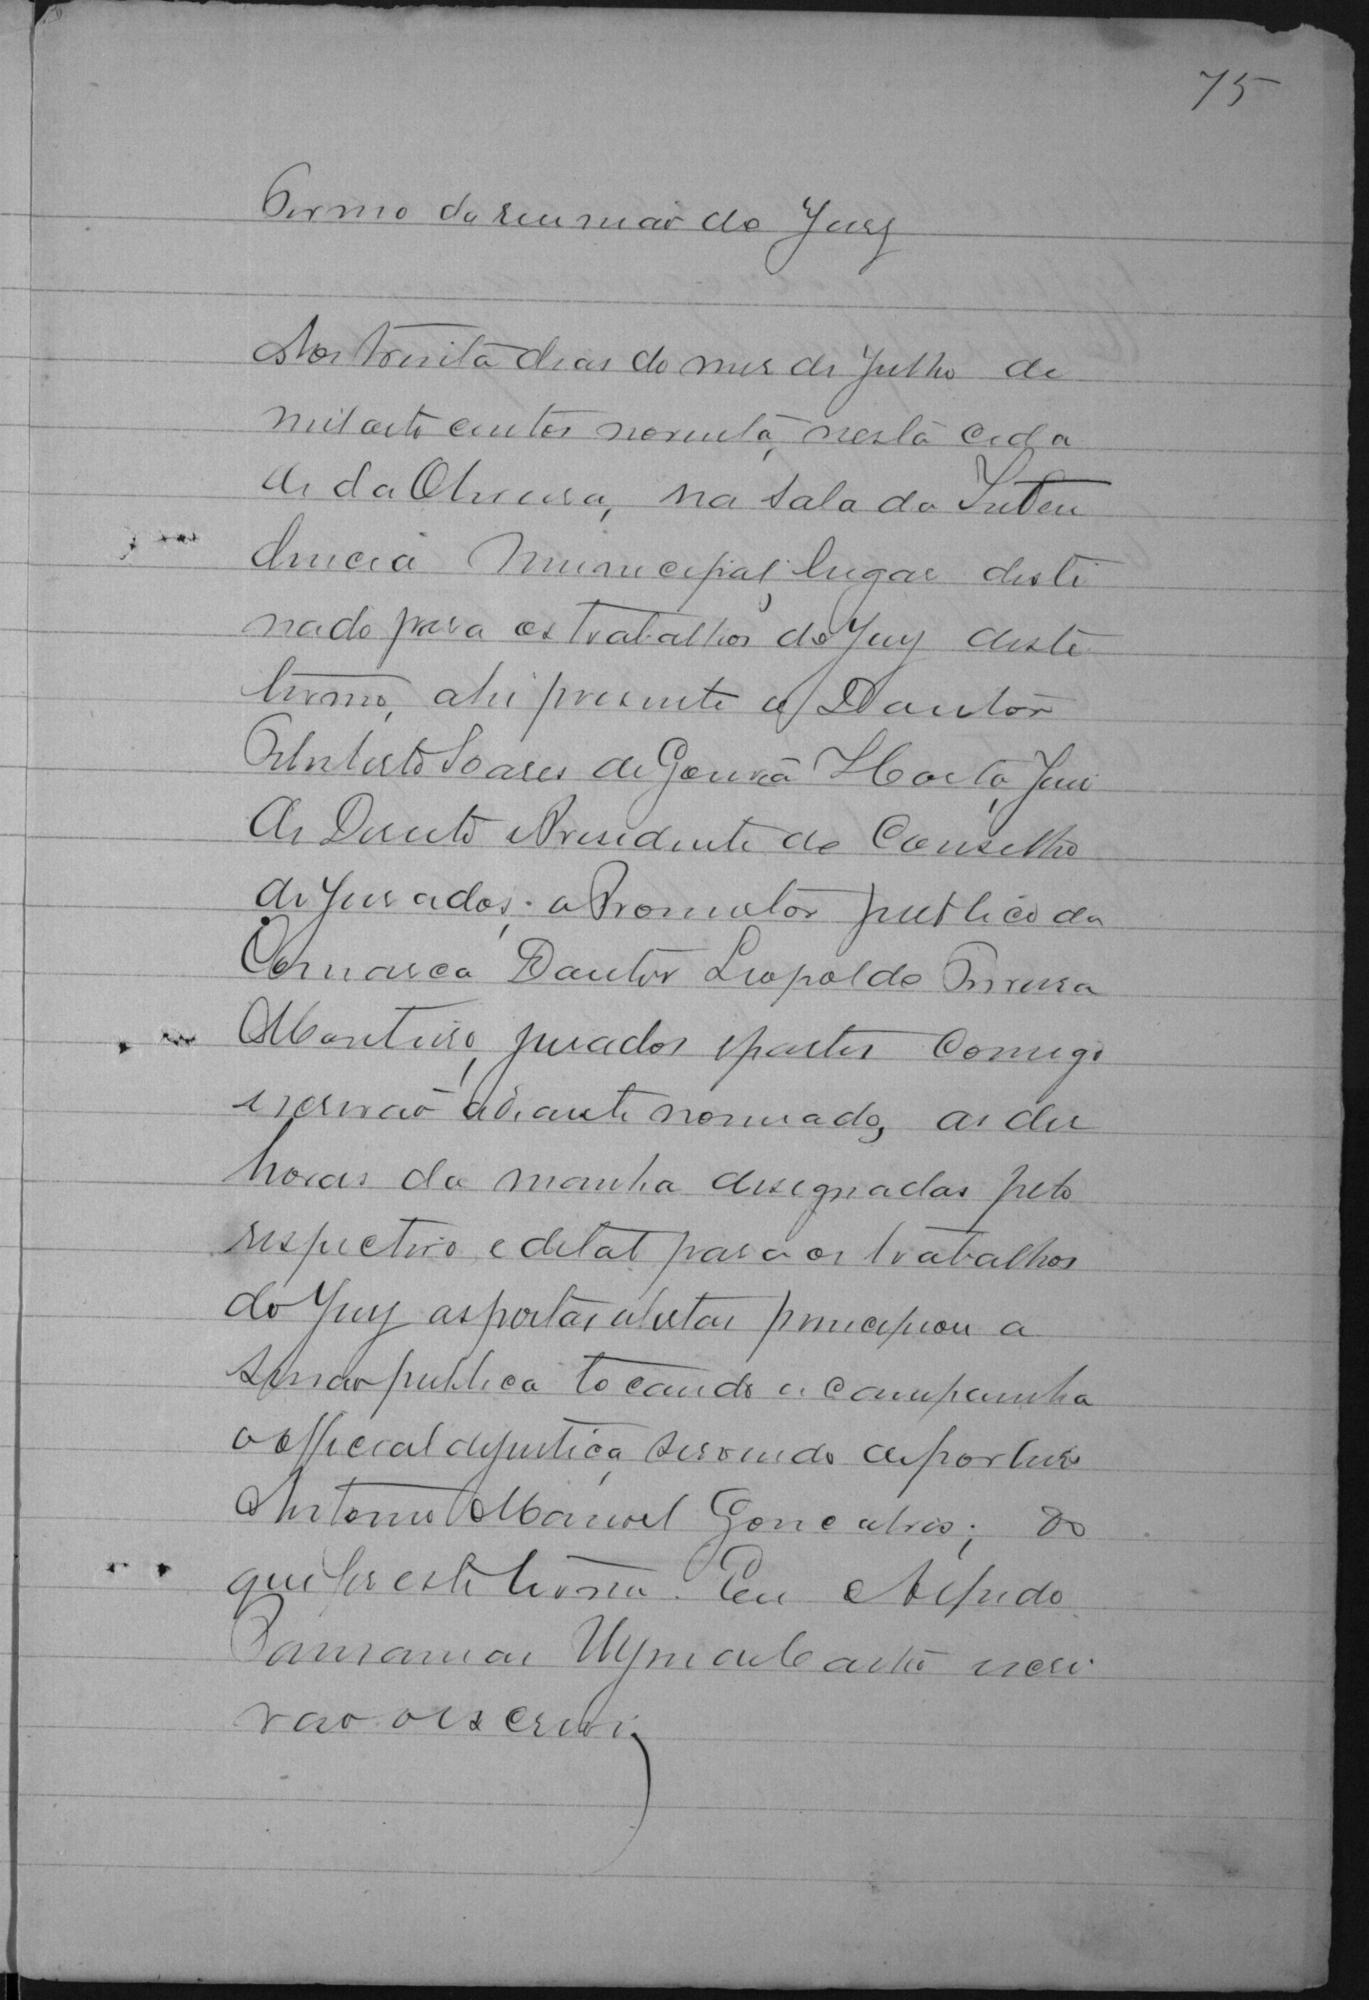 75
Termo da reunião do Jury
Aos trinta dias do mez de Julho de
mil oito centos noventa, nesta cida
de da Oliveira, na sala da Inten
dencia Municipal, lugar desti
nado para os trabalhos do Jury deste
termo, ahi presente o Doutor
Soares de Gouvêa Horta, Juiz
de Direito e Presidente do Conselho
de jurados; o Promotor publico da
Comarca Doutor Leopoldo
Monteiro, jurados e partes comigo
escrivão adiante nomeado, as dez
horas da manha designadas pelo
respectivo edital para os trabalhos
do Jury as portas abertas principiou a
sessão publica tocando a campanha
o official de justiça servindo de porteiro
Antonio Manoel Goncalves; do
que fiz este termo. Eu
escri
vão o escrevi